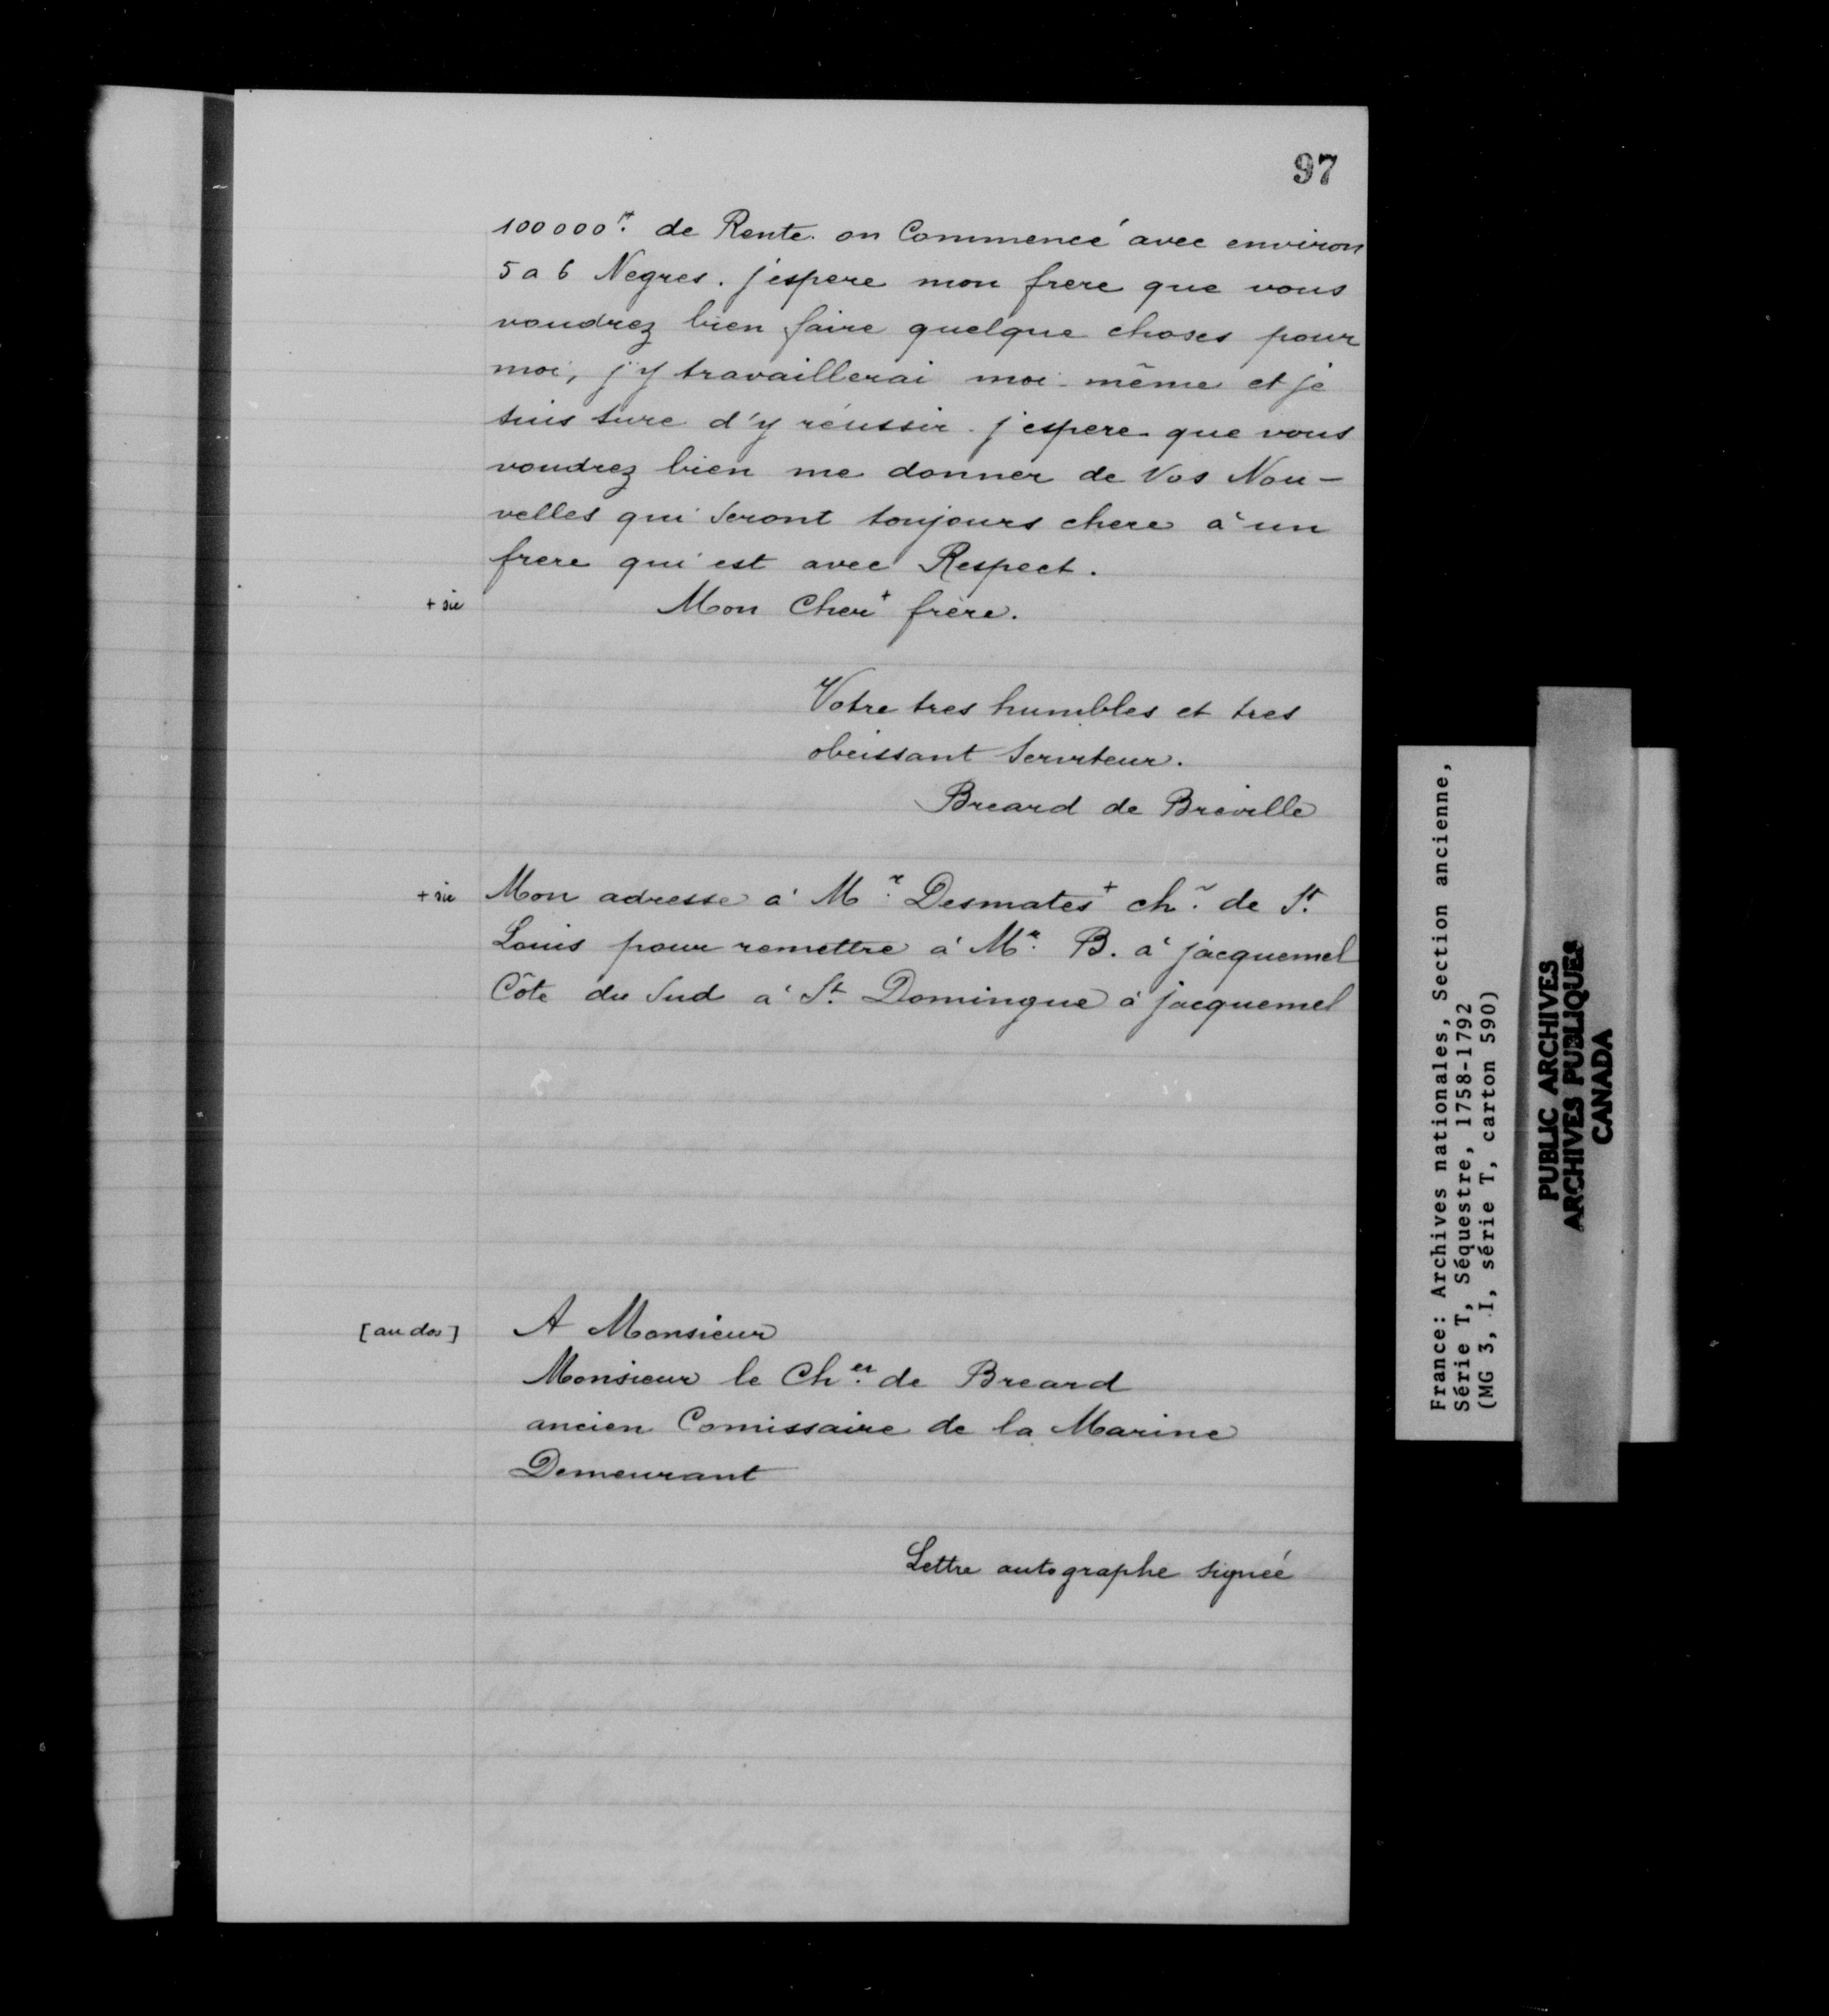 97
100000ᴴ. de Rente. on Commencé avec environ
5 a 6 Negres. j'espere mon frere que vous
voudrez bien faire quelque choses pour
moi, j'y travaillerai moi-même et je
suis sure d'y réussir. j'espere que vous
voudrez bien me donner de Vos Nou-
velles qui seront toujours chere à un
frere qui est avec Respect.
+ sic Mon Cheri+ frère.
Votre tres humbles et tres
obeissant Serviteur.
Breard de Breville
+ sic Mon adresse à Mr. Desmates+ chr. de St.
Louis pour remettre à Mr. B. à jacquemel
Côte du Sud à St. Domingue à jacquemel
[au dos] A Monsieur
Monsieur le Cher. de Breard
ancien Comissaire de la Marine
Demeurant
Lettre autographe signée
France: Archives nationales, Section ancienne,
Série T, Séquestre, 1758-1792
(MG 3, I, série T, carton 590)
PUBLIC ARCHIVES
ARCHIVES PUBLIQUES
CANADA